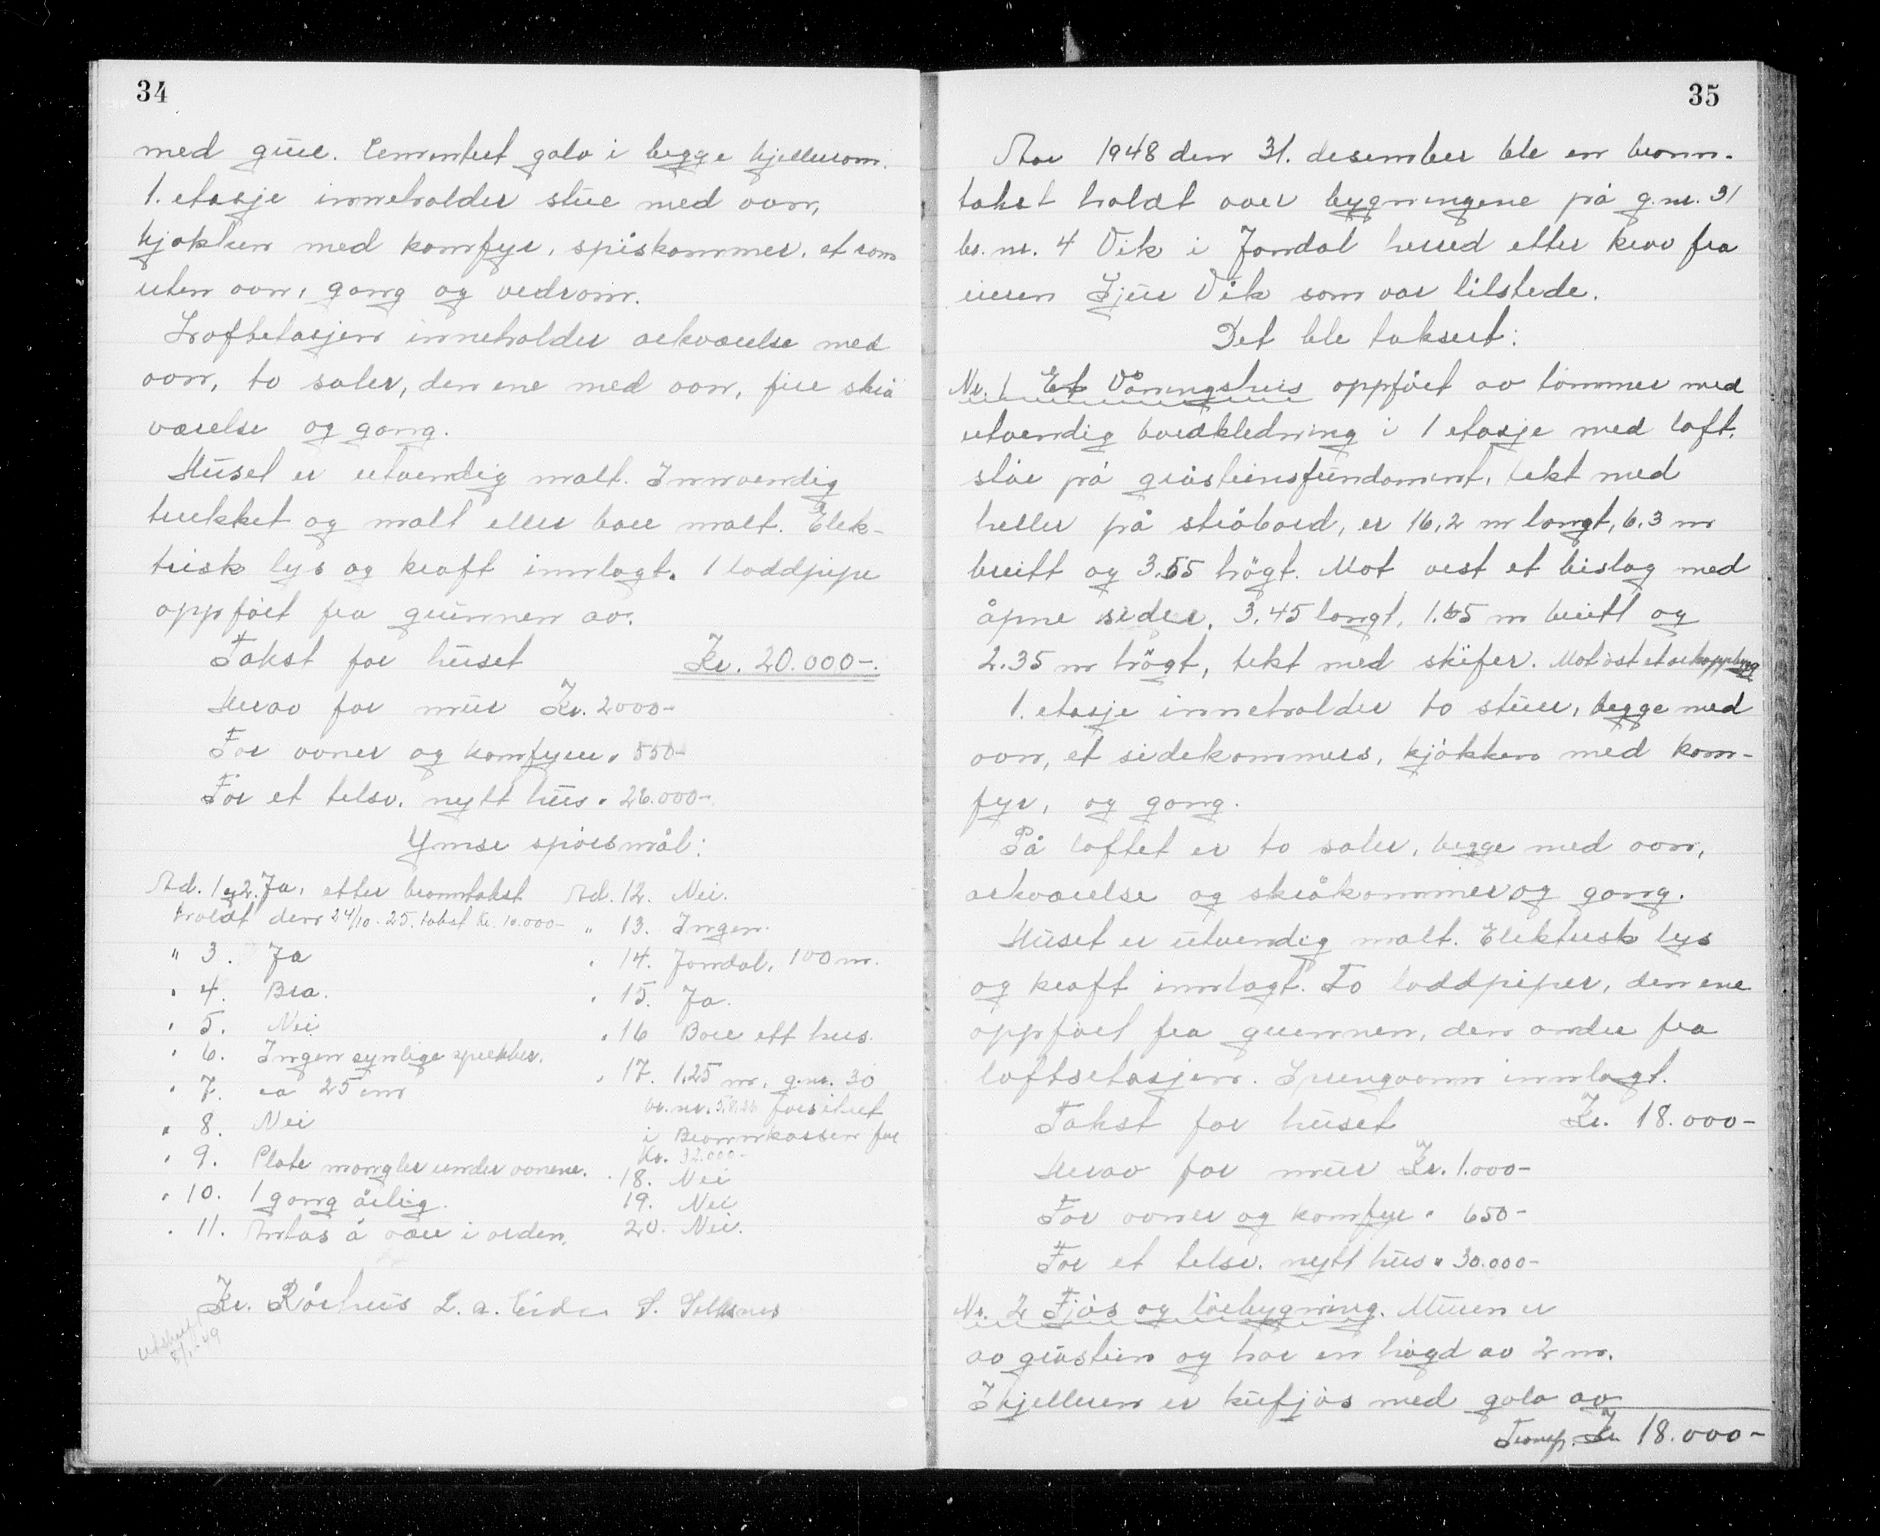 34
med grue. Cementert golv i begge kjellerrom.
1. etasje inneholder stue med ovn,
kjøkken med komfyr, spiskammer, et rom
uten ovn, gang og vedrom.
Loftetasjen inneholder arkværelse med
ovn, to saler, den ene med ovn, fire skrå
værelse og gang.
Huset er utvendig malt. Innvendig
trekket og malt eller bare malt. Elek-
trisk lys og kraft innlagt. 1 loddpipe
oppført fra grunnen av.
Takst for huset Kr. 20.000-.
Herav for mur Kr. 2000-
For ovner og komfyrer " 550-
For et tilsv. nytt hus " 26.000-
Ymse spørsmål:
Ad. 1 og 2. Ja, etter branntakst
holdt den 24/10. 25. takst kr. 10.000-
" 3. Ja
" 4. Bra.
" 5. Nei
" 6. Ingen synlige sprekker.
" 7. ca 25 cm
" 8. Nei
" 9. Plate mangler under ovnene.
" 10. 1 gang årlig.
" 11. Antas å være i orden.
Ad. 12. Nei.
" 13. Ingen.
" 14. Jondal, 100 m.
" 15. Ja.
" 16 Bare ett hus.
" 17. 1,25 m, g.nr. 30
br.nr. 5.8.26 forsikret
i Brannkassen for
Kr. 32.000-
" 18. Nei
19. Nei
20. Nei.
Kr. Rørhus L. A. Eide S. Selsnes
Utskrevet
8/1-49
35
Aar 1948 den 31. desember ble en brann-
takst holdt over bygningene på g.nr. 31
br. nr. 4 Vik i Jondal herred etter krav fra
eieren Sjur Vik som var tilstede.
Det ble taksert:
Nr. 1 Et Våningshus oppført av tømmer med
utvendig bordkledning i 1 etasje med loft,
står på gråsteinsfundament, tekt med
heller på stråbord, er 16,2 m langt, 6,3 m
breitt og 3.55 høgt. Mot vest et bislag med
åpne sider, 3,45 langt, 1.65 m breitt og
2.35 m høgt, tekt med skifer. Mot øst et arkoppbygg
1. etasje inneholder to stuer, begge med
ovn, et sidekammers, kjøkken med kom-
fyr, og gang.
På loftet er to saler, begge med ovn,
arkværelse og skråkammer og gang.
Huset er utvendig malt. Elektrisk lys
og kraft innlagt. To loddpiper, den ene
oppført fra grunnen, den andre fra
loftsetasjen. Springvann innlagt.
Takst for huset Kr. 18.000-
Herav for mur Kr. 1.000-
For ovner og komfyr " 650-
For et tilsv. nytt hus " 30.000-
Nr. 2 Fjøs og løebygning. Muren er
av gråstein og har en høgd av 2 m.
I kjelleren er kufjøs med golv av
Transp. Kr 18.000-